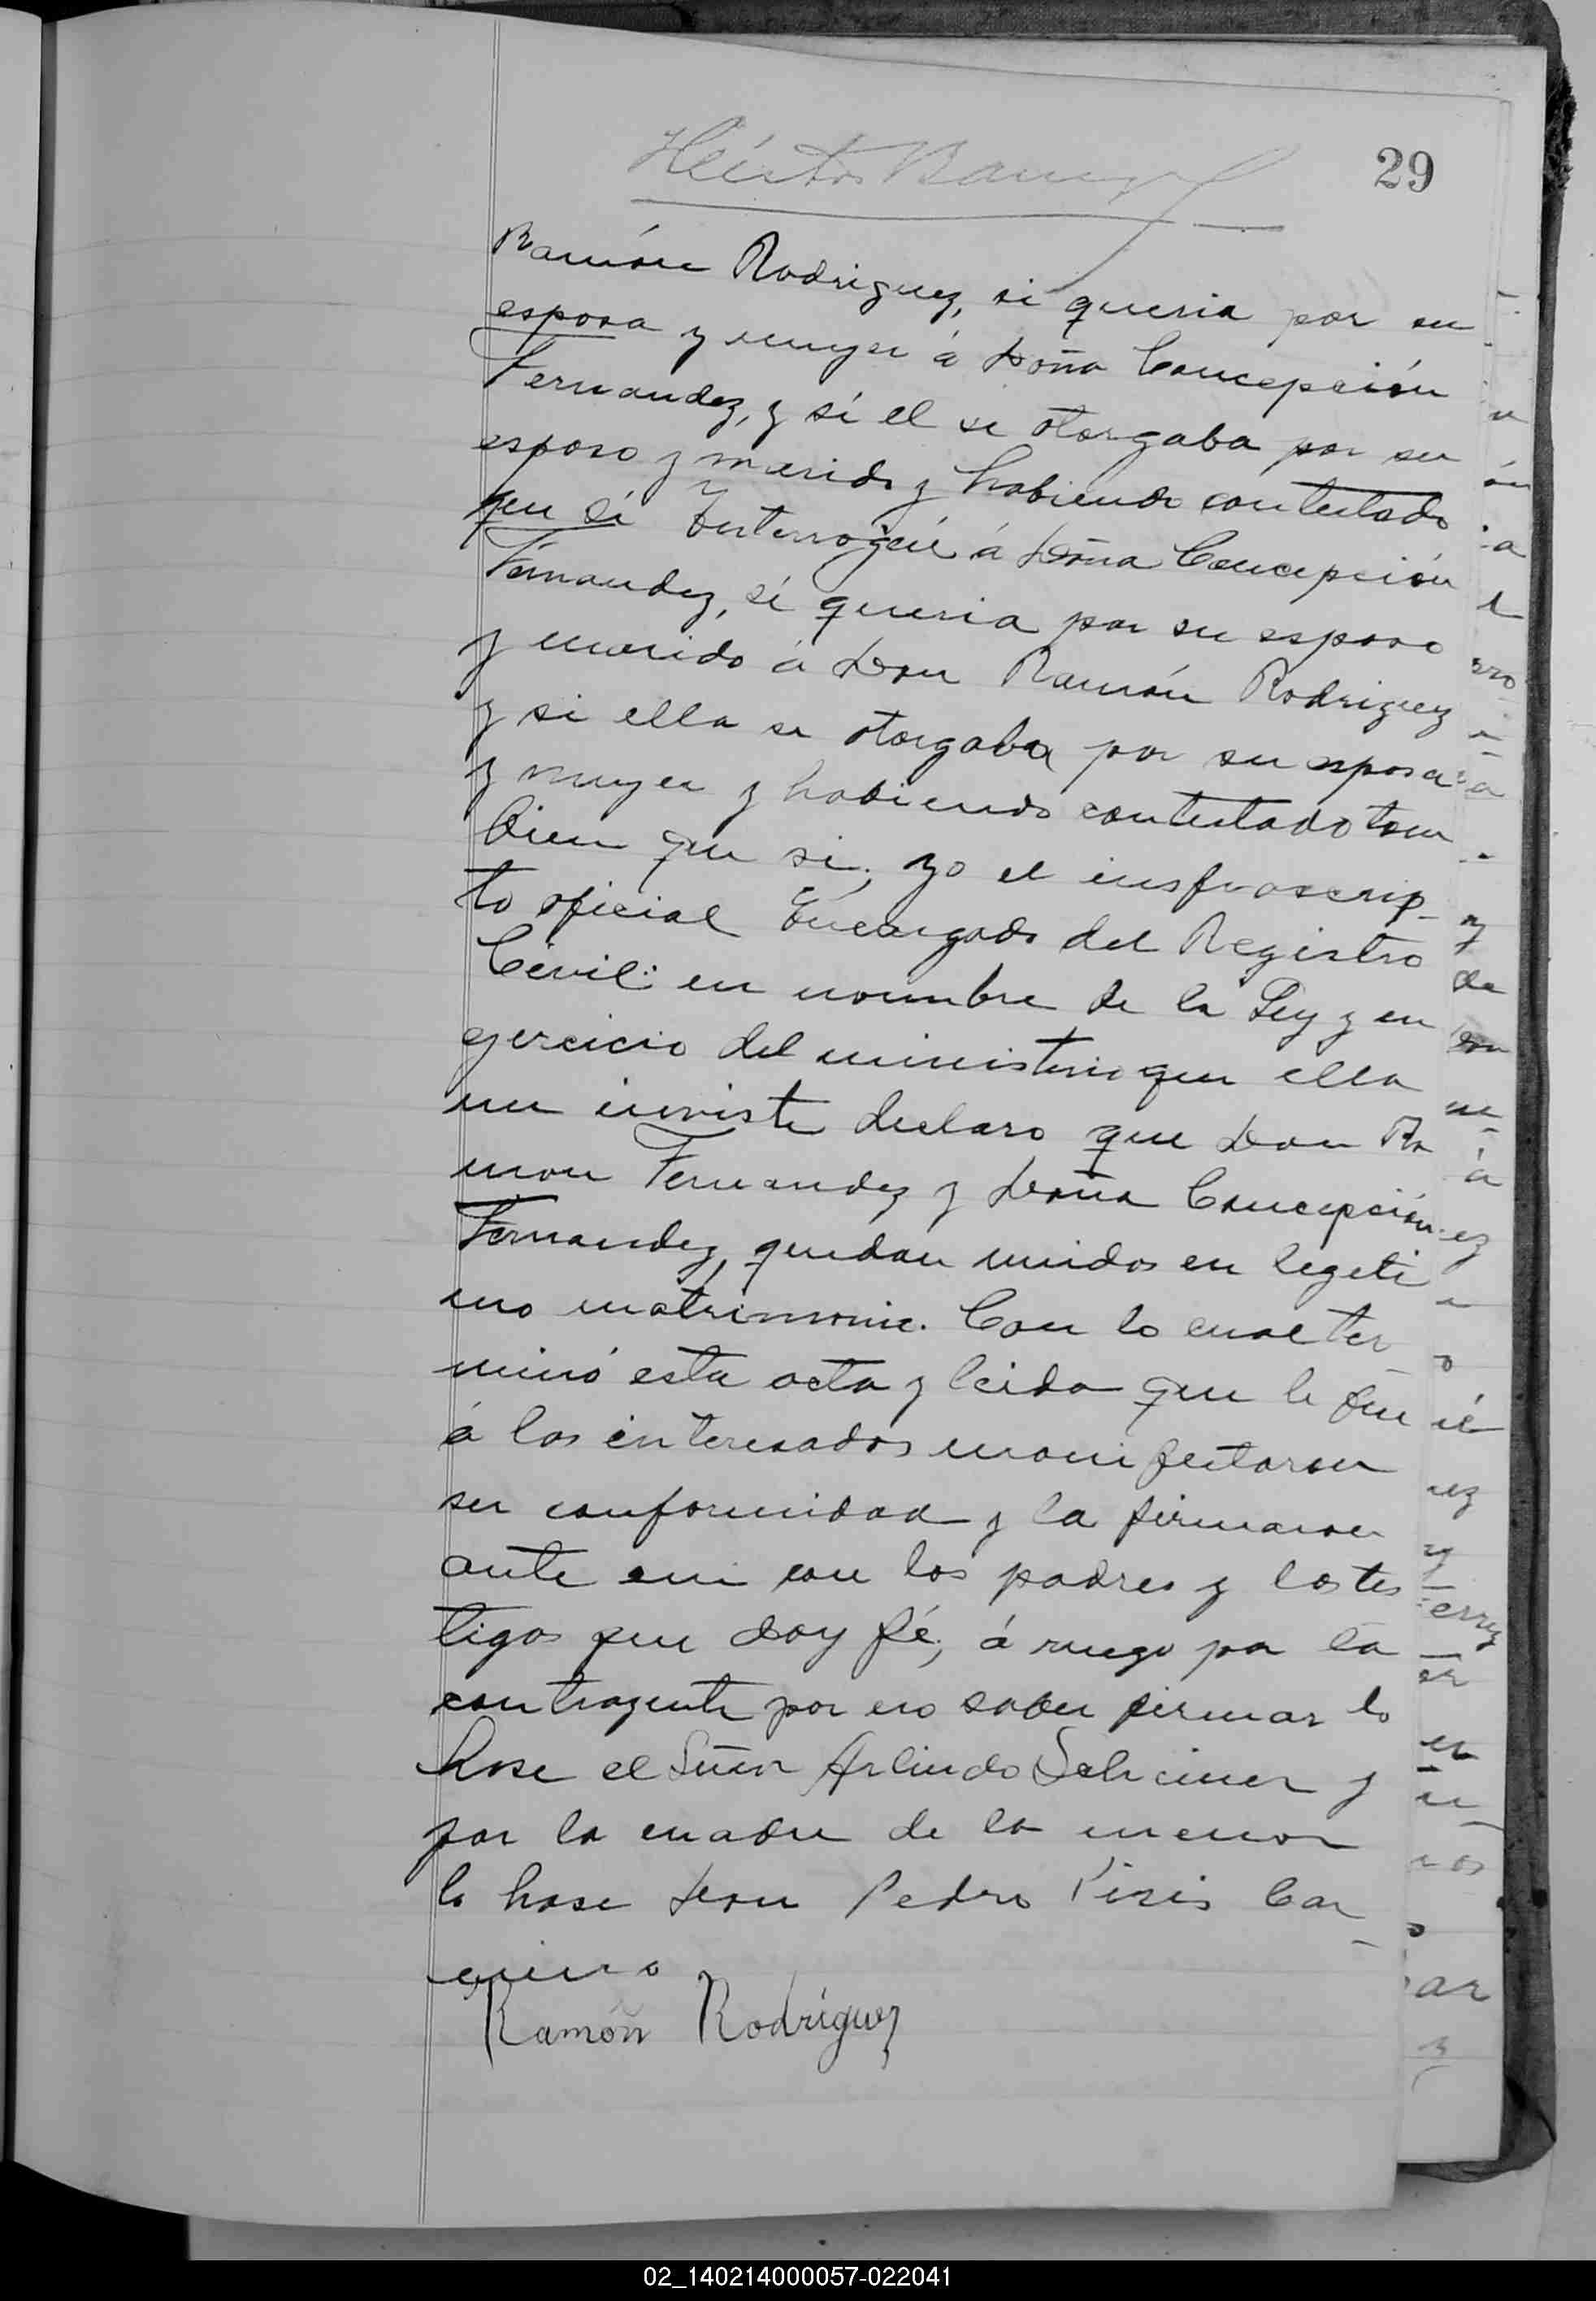 29
Ramón Rodriguez, si queria por su
esposa y muger á Doña Concepción
Fernandez, y sí el se otorgaba por su
esposo y marido y habiendo contestado
que sí Interrogué á Doña Concepción
Fernandez, si queria por su esposo
y marido á Don Ramón Rodriguez
y si ella se otorgaba por su esposa
y muger y habiendo contestado tam
bien que si; yo el insfrascrip-
to oficial Encargado del Registro
Civil: en nombre de la Ley y en
ejercicio del ministerio que ella
me inviste declaro que Don Ra
mon Fernandez y Doña Concepción
Fernandez, quedan unidos en legeti
mo matrimonio. Con lo cual ter
minó esta acta y leida que le fue
á los interesados manifestaron
su conformidad y la firmaron
ante mi con los padres y los tes
tigos que doy fé; á ruego por la
contrayente por no saber firmar lo
hase el Señor Arlindo
y
por la madre de la menor
lo hase Don Pedro Piris Car_
Ramón Rodríguez
02_140214000057-022041